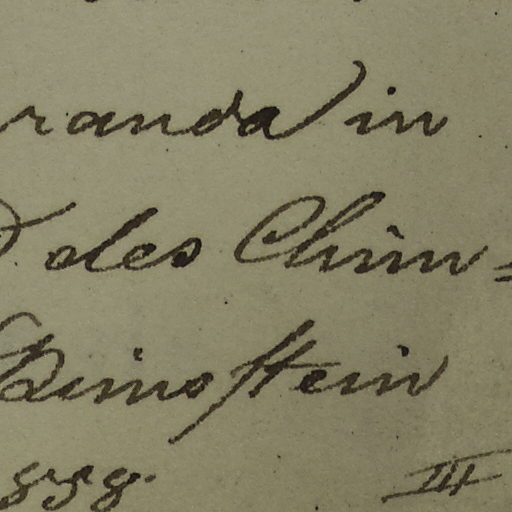 randa) in
des Chim=
Bimsstein
858. III